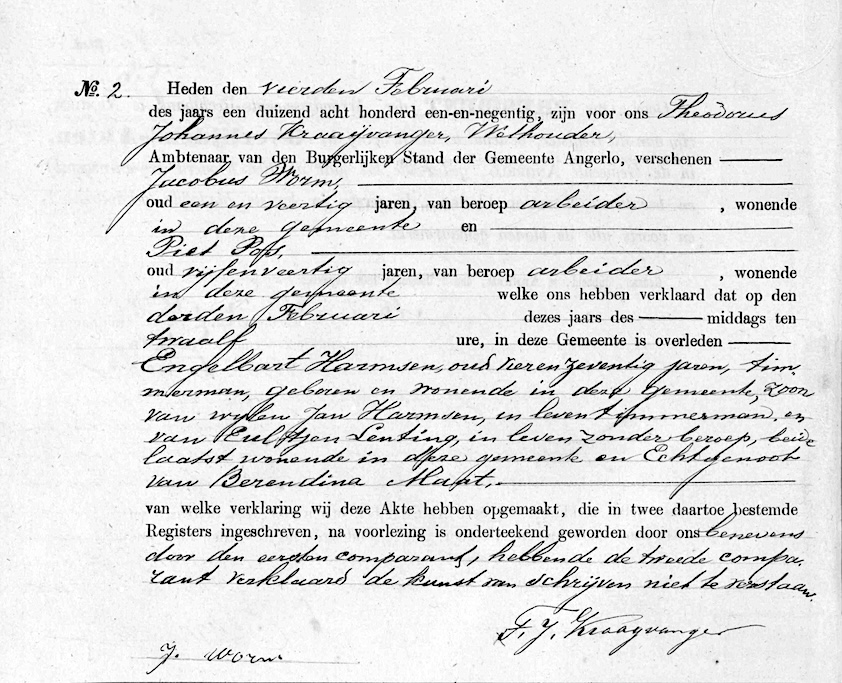 No. 2. Heden den vierden Februari
des jaars een duizend acht honderd een-en-negentig, zijn voor ons Theodorus
Johannes Kraayvanger, Wethouder,
Ambtenaar van den Burgerlijken Stand der Gemeente Angerlo, verschenen
Jacobus Worm,
oud een en veertig jaren, van beroep arbeider, wonende
in deze gemeente en
Piet Pos,
oud vijfenveertig jaren, van beroep arbeider, wonende
in deze gemeente welke ons hebben verklaard dat op den
derden Februari dezes jaars des middags ten
twaalf ure, in deze Gemeente is overleden
Engelbart Harmsen, oud vierenzeventig jaren, tim-
merman, geboren en wonende in deze gemeente, zoon
van wylen Jan Harmsen, in leven timmerman, en
van Lenting, in leven zonder beroep, beide
laatst wonende in deze gemeente en Echtgenoot
van Berendina Maat,
van welke verklaring wij deze Akte hebben opgemaakt, die in twee daartoe bestemde
Registers ingeschreven, na voorlezing is onderteekend geworden door ons benevens
door den eersten comparant, hebbende de tweede compa-
rant verklaard de kunst van schrijven niet te verstaan.
F. J. Kraayvanger
J. Worm